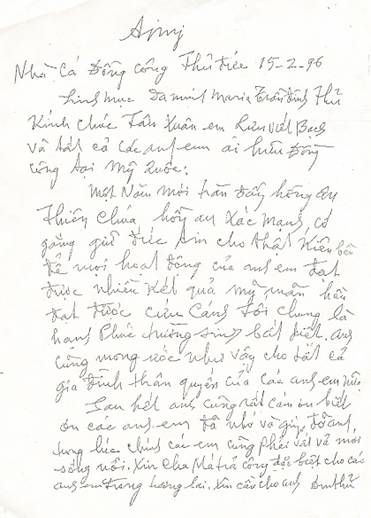 Nhà Cá Đồng Công Thủ Đức 15-2-96
Linh mục Đaminh Maria Trần Đình Thủ
Kính chúc Tân Xuân em Lưu Viết Bach
và tất cả các anh em ái hữu Đồng
Công tại Mỹ Quốc:
Một Năm mới tràn đầy hồng ân
Thiên Chúa hồn an Xác mạnh, cố
gắng giữ Đức tin cho thật Kiên bền
để mọi hoạt động của anh em đạt
được nhiều Kết quả mỹ mãn hầu
đạt được cứu Cánh tối chung là
hạnh Phúc trường sinh bất diệt. anh
cũng mong ước như vậy cho tất cả
gia đình thân quyến của Các anh em nữa.
Sau hết anh cũng rất cám ơn biết
ơn các anh em đã nhớ và giúp đỡ anh,
trong lúc chính các em cũng phải vất vả mới
sống nổi. Xin Cha Mẹ trả công đặc biệt cho các
anh em trong tương lai. Xin cầu cho anh